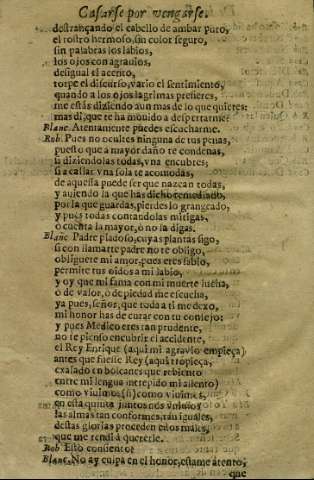 Casarse por vengarse.
destrançando el cabello de ambar puro,
el rostro hermoso, sin color seguro,
sin palabras los labios,
los ojos con agrauios,
desigual el acento,
torpe el discurso, vario el sentimiento,
quando a los ojos lagrimas prefieres,
me estás diziendo aun mas de lo que quieres:
mas di, que te ha mouido a despertarme?
Blanc. Atentamente puedes escucharme.
Rob. Pues no ocultes ninguna de tus penas,
puesto que a mayor daño te condenas,
si diziendolas todas, vna encubres;
si a callar vna sola te acomodas,
de aquella puede ser que nazcan todas,
y auiendo la que has dicho remediado,
por la que guardas, pierdes lo grangeado,
y pues todas contandolas mitigas,
o cuenta la mayor, ò no la digas.
Blanc Padre piadoso, cuyas plantas sigo,
si con llamarte padre no te obligo,
obliguete mi amor, pues eres sabio,
permite tus oidos a mi labio,
y oy que mi fama con mi muerte lucha,
ò de valor, ò de piedad me escucha,
ya pues, señor, que toda a ti me dexo,
mi honor has de curar con tu consejo:
y pues Medico eres tan prudente,
no te pienso encubrir el accidente,
el Rey Enrique (aqui mi agravio empieça)
antes que fuesse Rey (aqui tropieça,
exalado en bolcanes que rebiento
entre mi lengua intrepido mi aliento)
como viuimos (si) como viuimos,
en esta quinta juntos nos vnimos
las almas tan conformes, tan iguales,
destas glorias proceden estos males,
que me rendi a quererle.
Rob Esto consiente?
Blanc. No ay culpa en el honor, estame atento,
que